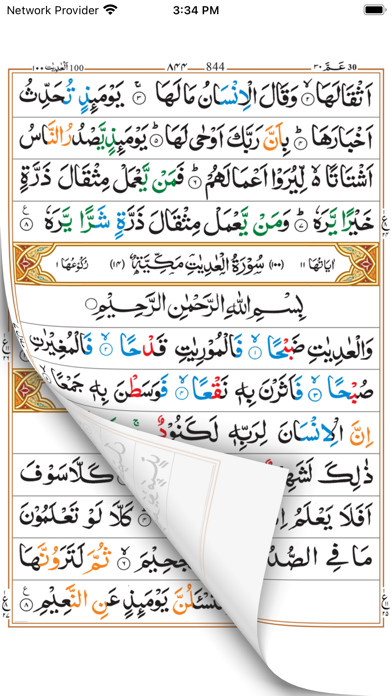 Network Provider 3:34 PM
اَلْعٰدِيٰت ١٠٠ 100 ٨٤٤ 844 عَـمَّ ٣٠ 30
اَثْقَالَهَا ۙ﴿۲﴾ وَقَالَ الْاِنْسَانُ مَا لَهَا ۚ﴿۳﴾ يَوْمَئِذٍ تُحَدِّثُ
اَخْبَارَهَا ۙ﴿۴﴾ بِاَنَّ رَبَّكَ اَوْحٰى لَهَا ؕ﴿۵﴾ يَوْمَئِذٍ يَّصْدُرُ النَّاسُ
اَشْتَاتًا ۙ۬ لِّيُرَوْا اَعْمَالَهُمْ ؕ﴿۶﴾ فَمَنْ يَّعْمَلْ مِثْقَالَ ذَرَّةٍ
خَيْرًا يَّرَهٗ ؕ﴿۷﴾ وَمَنْ يَّعْمَلْ مِثْقَالَ ذَرَّةٍ شَرًّا يَّرَهٗ ﴿۸﴾
اٰيَاتُهَا ١١ (١٠٠) سُوْرَةُ الْعٰدِيٰتِ مَكِّيَّةٌ (١٤) رُكُوْعُهَا ١
بِسْمِ اللّٰهِ الرَّحْمٰنِ الرَّحِيْمِ
وَالْعٰدِيٰتِ ضَبْحًا ۙ﴿۱﴾ فَالْمُوْرِيٰتِ قَدْحًا ۙ﴿۲﴾ فَالْمُغِيْرٰتِ
صُبْحًا ۙ﴿۳﴾ فَاَثَرْنَ بِهٖ نَقْعًا ۙ﴿۴﴾ فَوَسَطْنَ بِهٖ جَمْعًا ۙ﴿۵﴾
اِنَّ الْاِنْسَانَ لِرَبِّهٖ لَكَنُوْدٌ
ذٰلِكَ كَلَّا سَوْفَ
اَفَلَا يَعْلَمُ كَلَّا لَوْ تَعْلَمُوْنَ
مَا فِي ثُمَّ لَتَرَوُنَّهَا
يَوْمَئِذٍ عَنِ النَّعِيْمِ ﴿۸﴾